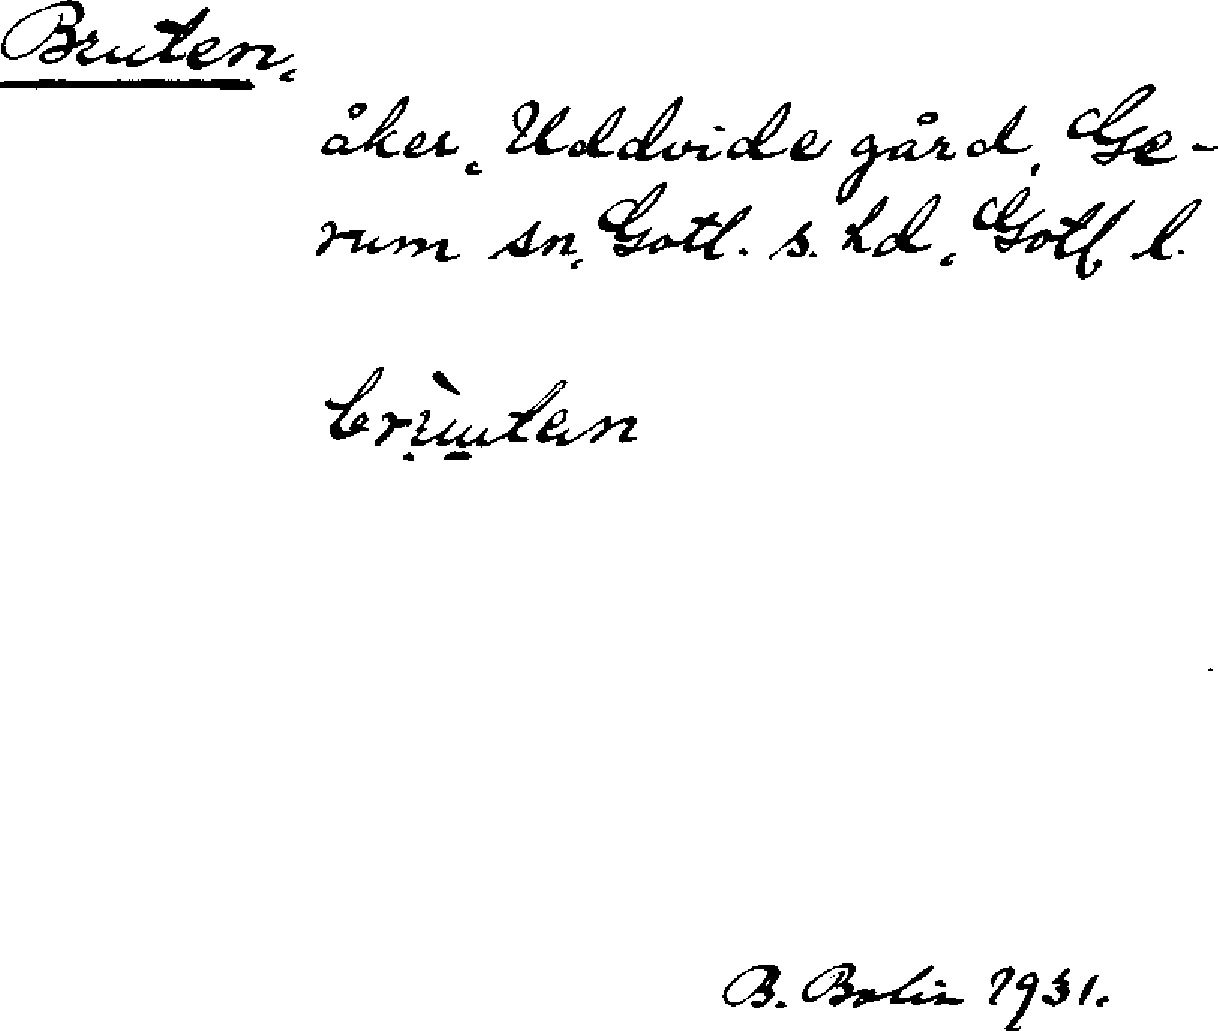 Bruten,
åker, Uddvide gård, Ge-
rum sn, Gotl. s. hd, Gotl. l.
B. Bolin 1931.